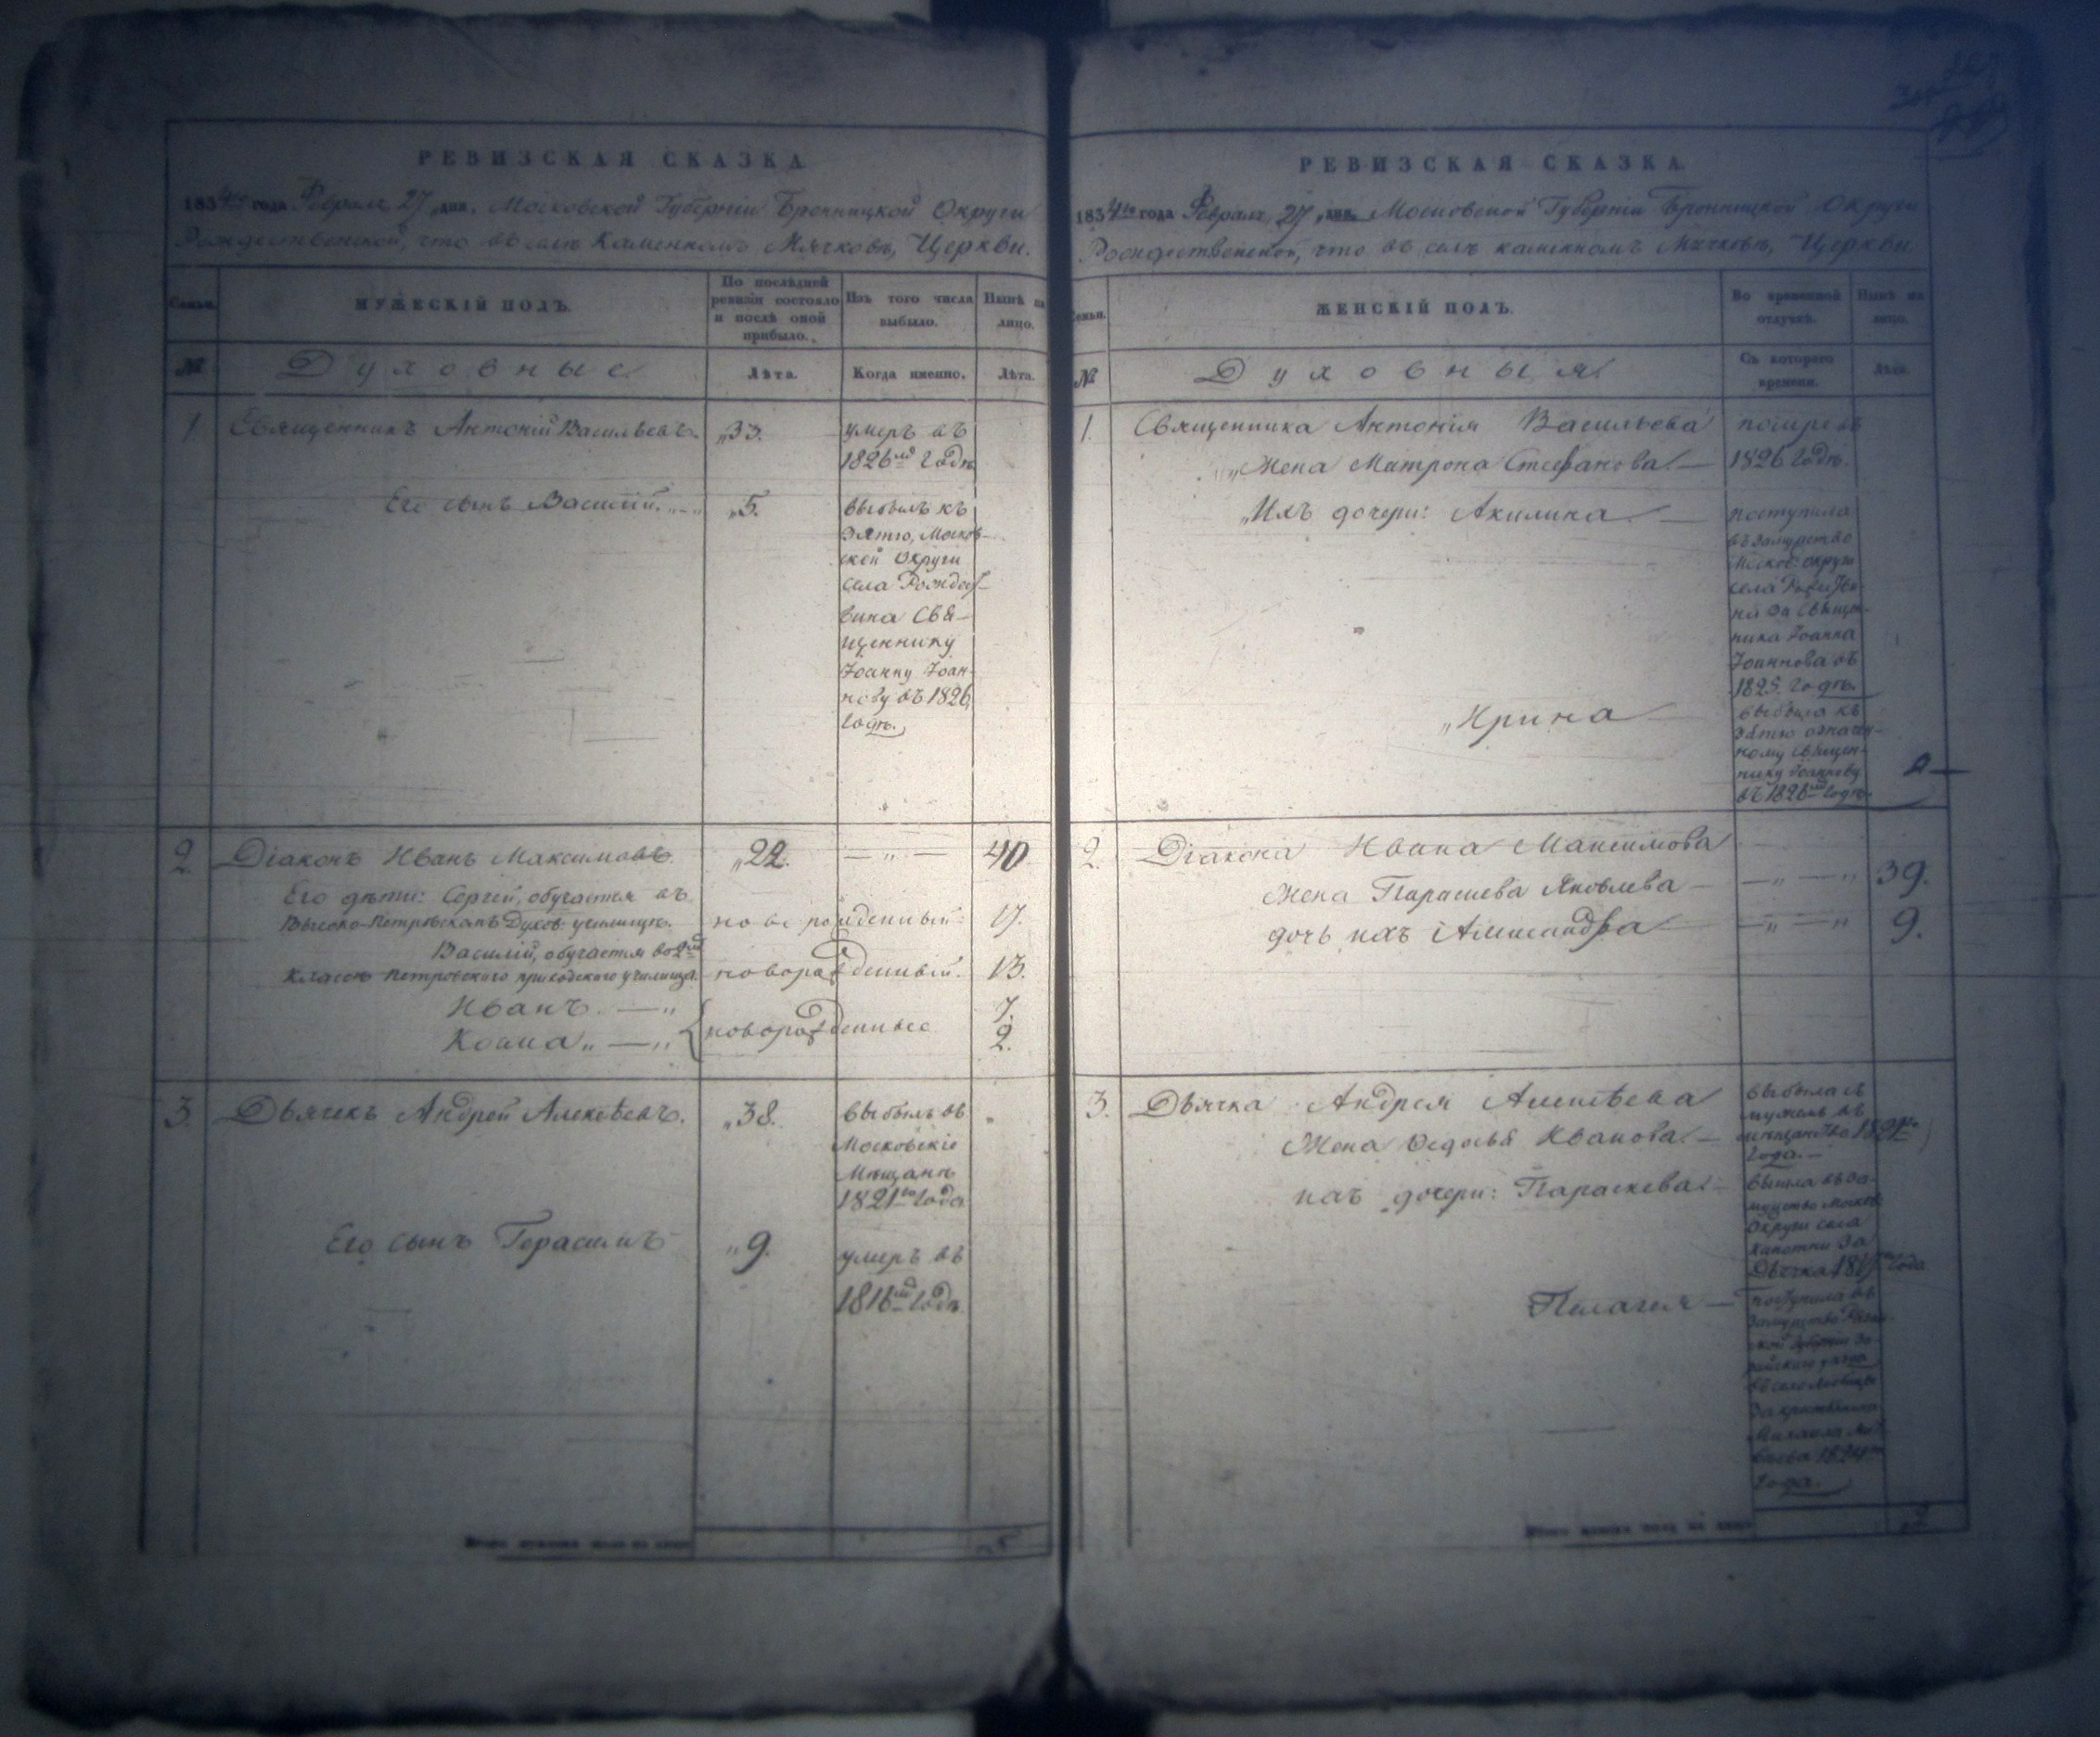 РЕВИЗСКАЯ СКАЗКА
1834го года Февраля 27 дня. Московской Губерніи Бронницкой Округи
Рождественской, что въ селѣ Каменномъ Мячковѣ, Церкви.
Семьи.
МУЖЕСКІЙ ПОЛЪ.
По послѣдней
ревизіи состояло
и послѣ оной
прибыло.
Изъ того числа
выбыло.
Нынѣ на
лицо.
№
Духовные
Лѣта.
Когда именно.
Лѣта.
1.
Священникъ Антоній Васильевъ.
33.
умеръ въ
1826мъ годѣ
Его сынъ Василій.
5.
выбылъ къ
Зятю, Москов-
ской Округи
села Рождест-
вина Свя-
щеннику
Іоанну Іоан-
нову въ 1826
годѣ.
2
Діаконъ Иванъ Максимовъ.
22.
40
Его дѣти: Сергей, обучается въ
Высоко-Петровскомъ Духов: училищѣ.
новорожденный:
17.
Василій, обучается во 2мъ
классѣ Петровскаго приходскаго училища.
новорожденный.
13.
Иванъ.
7.
Козма
новорожденные
2.
3.
Дьячекъ Андрей Алексѣевъ.
38.
выбылъ въ
Московскіе
Мѣщане
1821го года
Его сынъ Герасимъ
9.
умеръ въ
1816мъ годѣ.
Итого мужеска полу на лицо
РЕВИЗСКАЯ СКАЗКА.
1834го года Февраля 27 дня. Московской Губерніи Бронницкой Округи
Рождественской, что въ селѣ каменномъ Мячковѣ, Церкви.
Семьи.
ЖЕНСКІЙ ПОЛЪ.
Во временной
отлучкѣ.
Нынѣ на
лицо.
№
Духовныя
Съ котораго
времени.
Лѣта.
1.
Священника Антонія Васильева
Жена Матрона Стефанова.
1826 годѣ.
Ихъ дочери: Акилина
поступила
въ замужство
Москов: округи
села
за Священ-
ника Іоанна
Іоаннова въ
1825. годѣ.
Ирина
выбыла къ
Зятю означен-
ному Священ-
нику Іоаннову
въ 1826мъ годѣ.
2.
Діакона Ивана Максимова
Жена Параскева Яковлева
39.
дочь ихъ Александра
9.
3.
Дьячка Андрея Алексѣева
Жена Ѳедосья Иванова.
выбыла съ
мужемъ въ
мѣщанство 1821го
года.
ихъ дочери: Параскева
вышла въ за-
мужство Москов:
Округи села
Капотни за
Дьячка
года
Пелагея
поступила въ
замужство Рязан-
ской Губерніи За-
райскаго уѣзда
въ село
за крестьянина
Михаила
1824го
года.
Итого женска полу на лицо